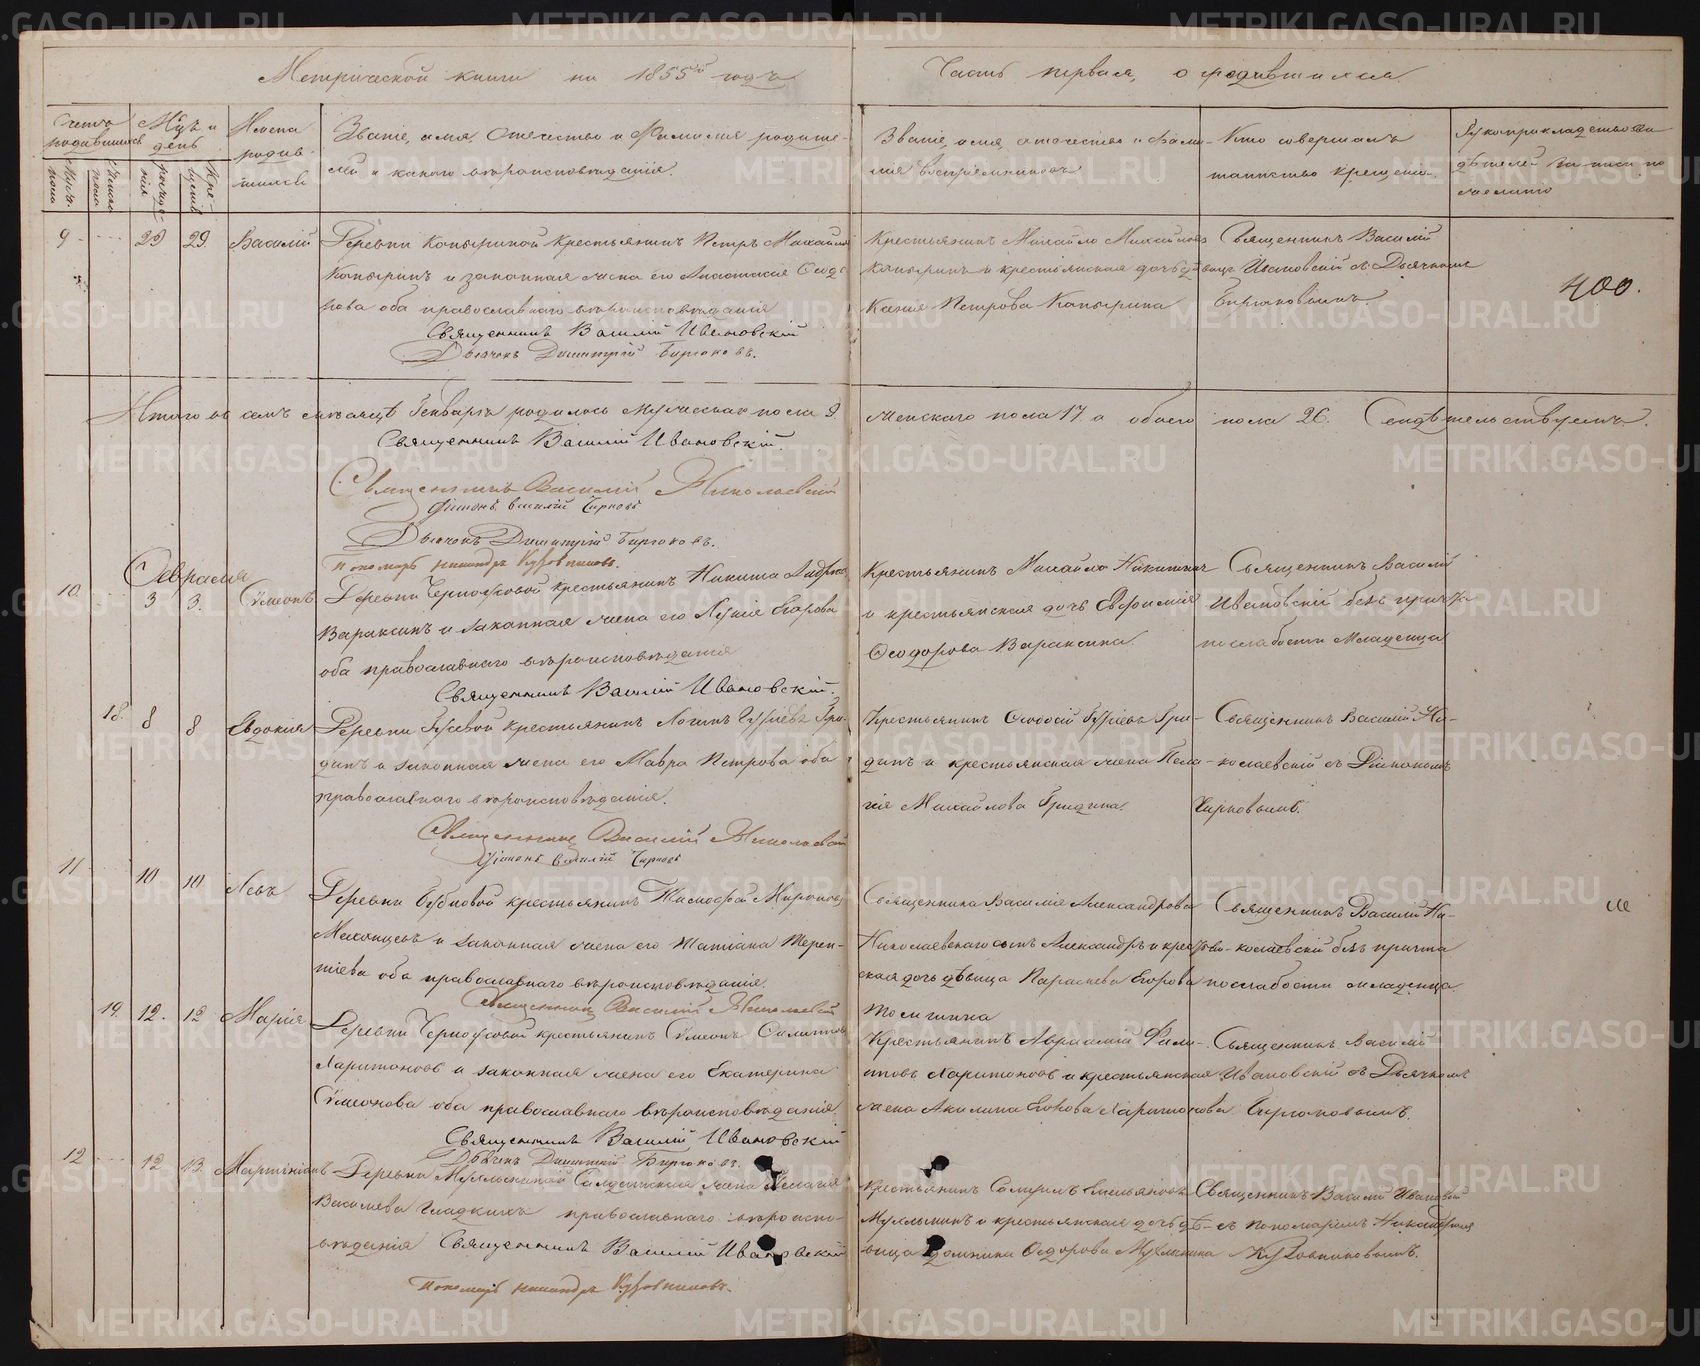 Метрической книги на 1855й годъ
Часть первая, о родившихся
Счетъ родившихся
Муж. пола
Женска пола
Мѣцъ и день
рожденія
крещенія
Имена родившихся
Званіе, имя, отечество и фамилія родителей и какого вѣроисповѣданія.
Званіе, имя, отечество и фамилія воспріемниковъ
Кто совершалъ таинство крещенія
Рукоприкладство свидѣтелей записи по желанію
9 29 29. Василій
Деревни Копыриной крестьянинъ Петръ Михайловъ
Копыринъ и законная жена его Анастасія Ѳеодорова оба православнаго вѣроисповѣданія
Священникъ Василій Ивановскій
Дьячокъ Димитрій Бирюковъ.
Крестьянинъ Михайло Михайловъ
Копыринъ и крестьянская дочь дѣвица
Ксенія Петрова Копырина
Священникъ Василій
Ивановскій съ Дьячкомъ
Бирюковымъ.
400.
Итого въ семъ мѣсяцѣ Генварѣ родилось мужескаго пола 9. женскаго пола 17. а обоего пола 26. Свидѣтельствуемъ.
Священникъ Василій Ивановскій.
Священникъ Василій Николаевскій
Діаконъ Василій Чирковъ
Дьячокъ Димитрій Бирюковъ.
Пономарь Никандръ Кузовниковъ.
Февраля
10 3 3. Сѵмеонъ
Деревни Черноусовой крестьянинъ Никита
Вараксинъ и законная жена его Лукія Егорова
оба православнаго вѣроисповѣданія
Священникъ Василій Ивановскій.
Крестьянинъ Михайло Никитинъ
и крестьянская дочь Евфимія
Ѳеодорова Вараксина.
Священникъ Василій
Ивановскій безъ причта
по слабости младенца
18. 8 8 Евдокія
Деревни Гусевой крестьянинъ Логинъ Гурьевъ Гридинъ и законная жена его Мавра Петрова оба
православнаго вѣроисповѣданія.
Священникъ Василій Николаевскій
Діаконъ Василій Чирковъ
Крестьянинъ Ѳеодосій Гурьевъ Гридинъ и крестьянская жена Пелагія Михайлова Гридина.
Священникъ Василій Николаевскій съ Діакономъ
Чирковымъ.
11 10 10 Левъ
Деревни Бубновой крестьянинъ Тимофей Мироновъ
и законная жена его Татіана Терентіева оба православнаго вѣроисповѣданія.
Священникъ Василій Николаевскій
Священника Василія Александрова
Николаевскаго сынъ Александръ и крестьянская дочь дѣвица Параскева Егорова
Священникъ Василій Николаевскій безъ причта
по слабости младенца
19. 12. 12 Марія
Деревни Черноусовой крестьянинъ Сѵмеонъ
Харитоновъ и законная жена его Екатерина
Сѵмеонова оба православнаго вѣроисповѣданія.
Священникъ Василій Ивановскій
Дьячекъ Димитрій Бирюковъ.
Крестьянинъ Авраамій Филиповъ Харитоновъ и крестьянская
жена Акилина Харитонова
Священникъ Василій
Ивановскій съ Дьячкомъ
Бирюковымъ.
12 12 13. Мартиніанъ
Деревни солдатская жена Пелагія
Васильева Гладкихъ православнаго вѣроисповѣданія Священникъ Василій Ивановскій
Пономарь Никандръ Кузовниковъ.
Крестьянинъ
и крестьянская дочь дѣвица Домника Ѳедорова
Священникъ Василій Ивановскій
съ пономаремъ Никандромъ
Кузовниковымъ.
METRIKI.GASO-URAL.RU